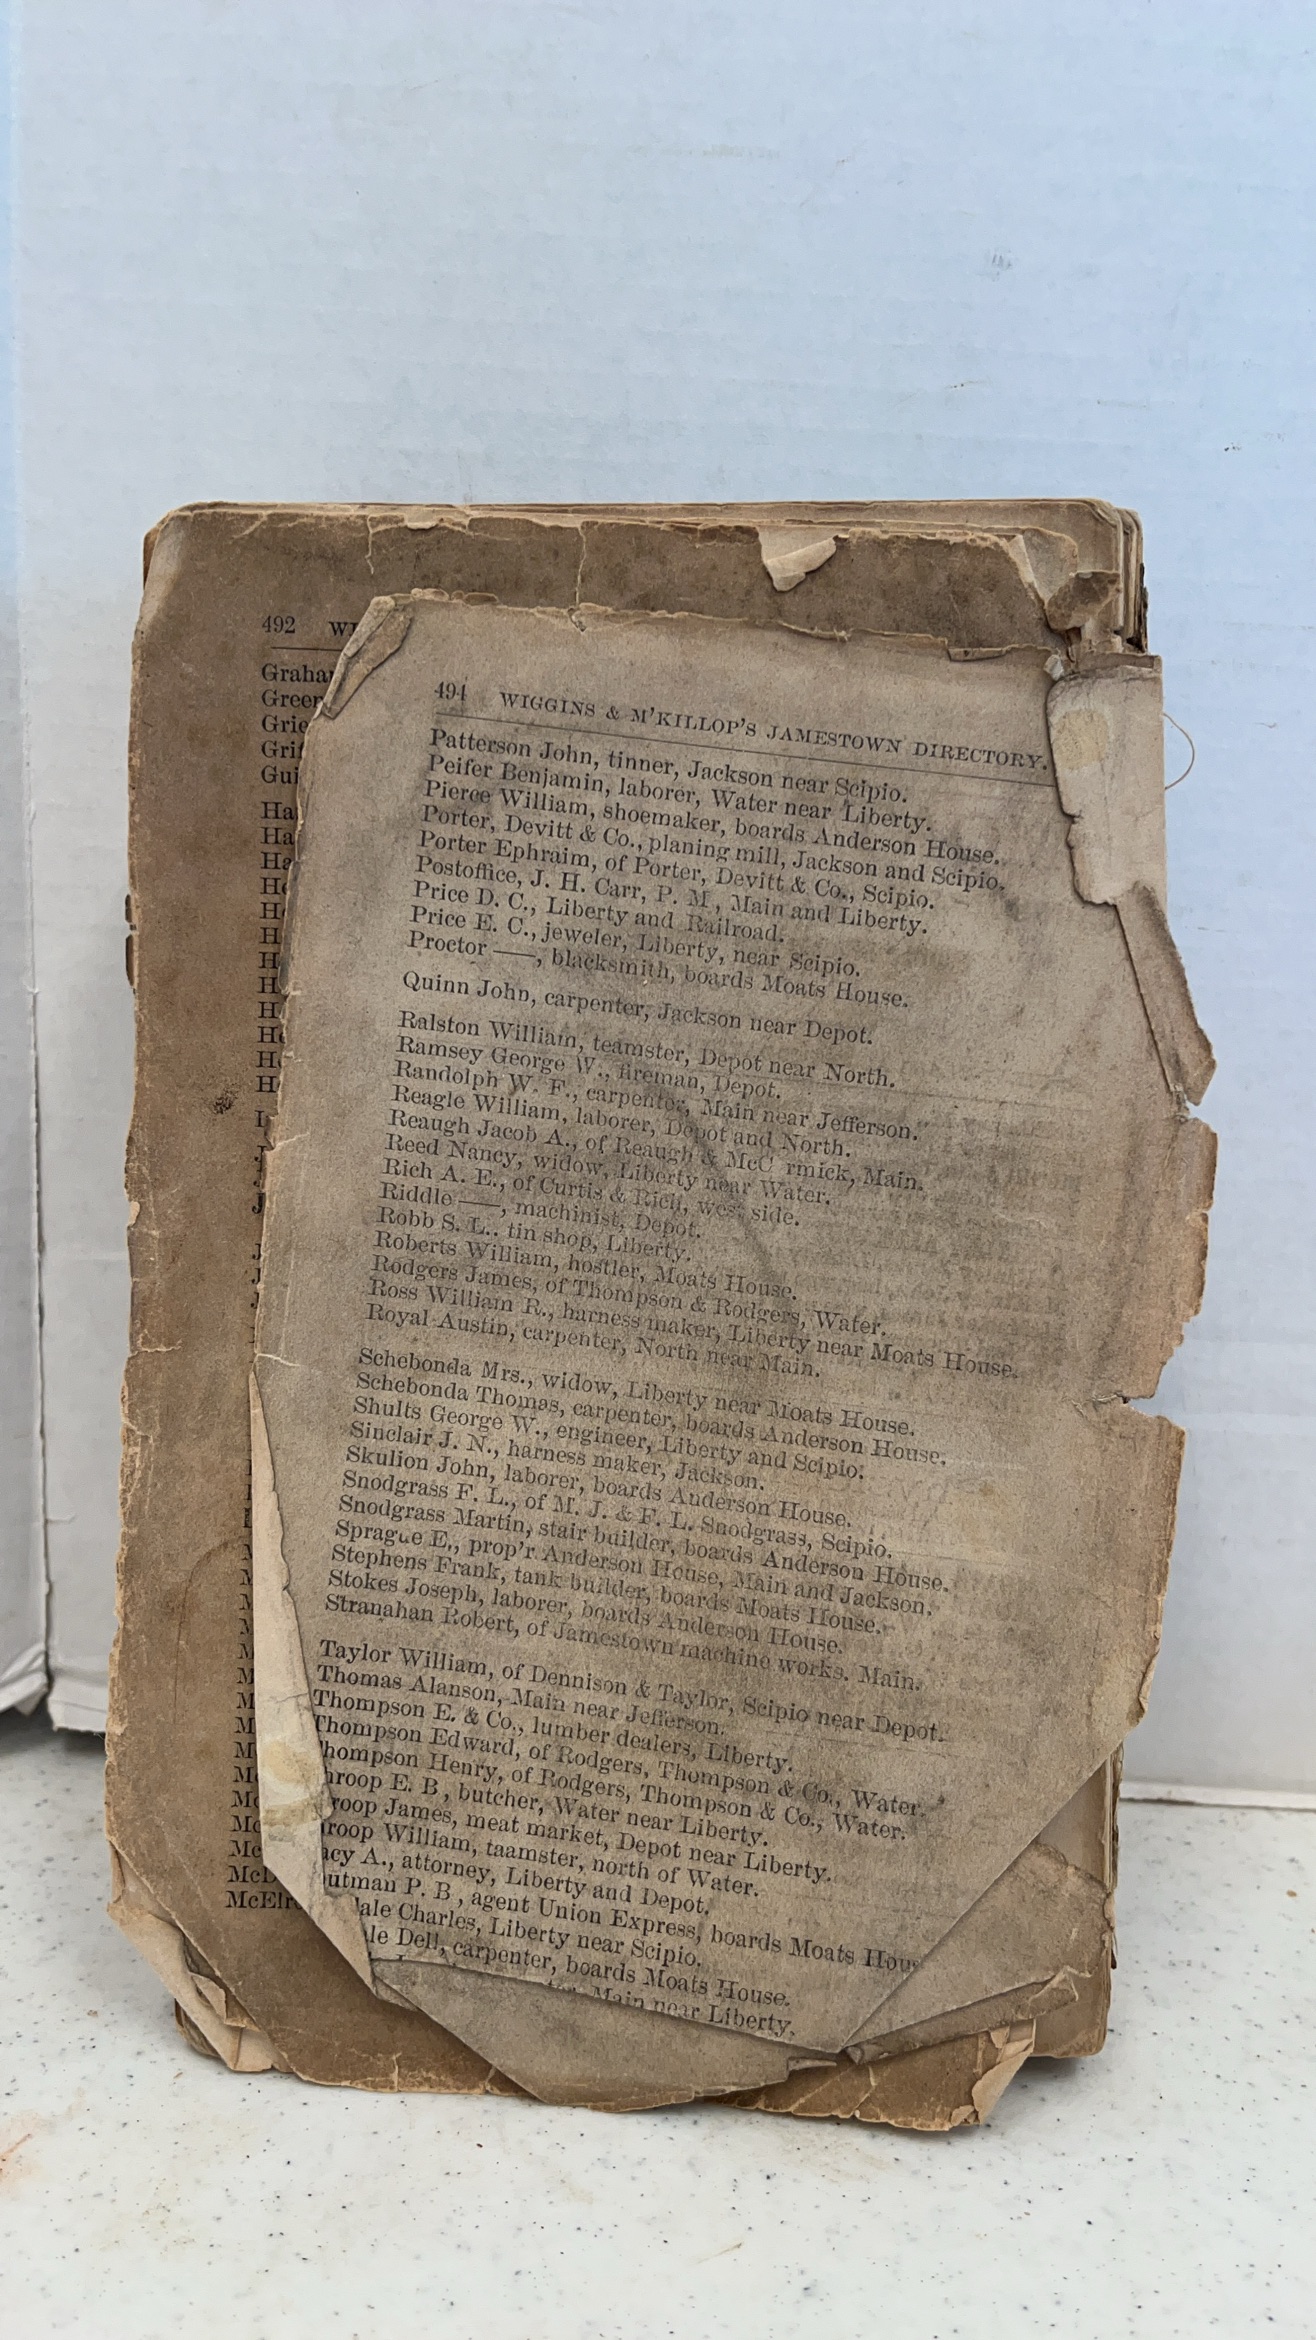 492 WI
Graha
Green
Grie
Grif
Gui
Ha
Ha
Ha
He
H
H
H
H
H
He
H
H
J
J
J
M
M
M
M
M
M
M
M
Mc
Mc
Mc
Mc
McD
McElr
494 WIGGINS & M'KILLOP'S JAMESTOWN DIRECTORY.
Patterson John, tinner, Jackson near Scipio.
Peifer Benjamin, laborer, Water near Liberty.
Pierce William, shoemaker, boards Anderson House.
Porter, Devitt & Co., planing mill, Jackson and Scipio.
Porter Ephraim, of Porter, Devitt & Co., Scipio.
Postoffice, J. H. Carr, P. M, Main and Liberty.
Price D. C., Liberty and Railroad.
Price E. C., jeweler, Liberty, near Scipio.
Proctor ——, blacksmith, boards Moats House.
Quinn John, carpenter, Jackson near Depot.
Ralston William, teamster, Depot near North.
Ramsey George W., fireman, Depot.
Randolph W. F., carpenter, Main near Jefferson.
Reagle William, laborer, Depot and North.
Reaugh Jacob A., of Reaugh & McC rmick, Main.
Reed Nancy, widow, Liberty near Water.
Rich A. E., of Curtis & Rich, west side.
Riddle ——, machinist, Depot.
Robb S. L., tin shop, Liberty.
Roberts William, hostler, Moats House.
Rodgers James, of Thompson & Rodgers, Water.
Ross William R., harness maker, Liberty near Moats House.
Royal Austin, carpenter, North near Main.
Schebonda Mrs., widow, Liberty near Moats House.
Schebonda Thomas, carpenter, boards Anderson House.
Shults George W., engineer, Liberty and Scipio.
Sinclair J. N., harness maker, Jackson.
Skulion John, laborer, boards Anderson House.
Snodgrass F. L., of M. J. & F. L. Snodgrass, Scipio.
Snodgrass Martin, stair builder, boards Anderson House.
Sprague E., prop'r Anderson House, Main and Jackson.
Stephens Frank, tank builder, boards Moats House.
Stokes Joseph, laborer, boards Anderson House.
Stranahan Robert, of Jamestown machine works. Main.
Taylor William, of Dennison & Taylor, Scipio near Depot.
Thomas Alanson, Main near Jefferson.
Thompson E. & Co., lumber dealers, Liberty.
Thompson Edward, of Rodgers, Thompson & Co., Water.
hompson Henry, of Rodgers, Thompson & Co., Water.
hroop E. B, butcher, Water near Liberty.
roop James, meat market, Depot near Liberty.
roop William, taamster, north of Water.
acy A., attorney, Liberty and Depot.
outman P. B, agent Union Express, boards Moats Hou
ale Charles, Liberty near Scipio.
le Dell, carpenter, boards Moats House.
Main near Liberty.